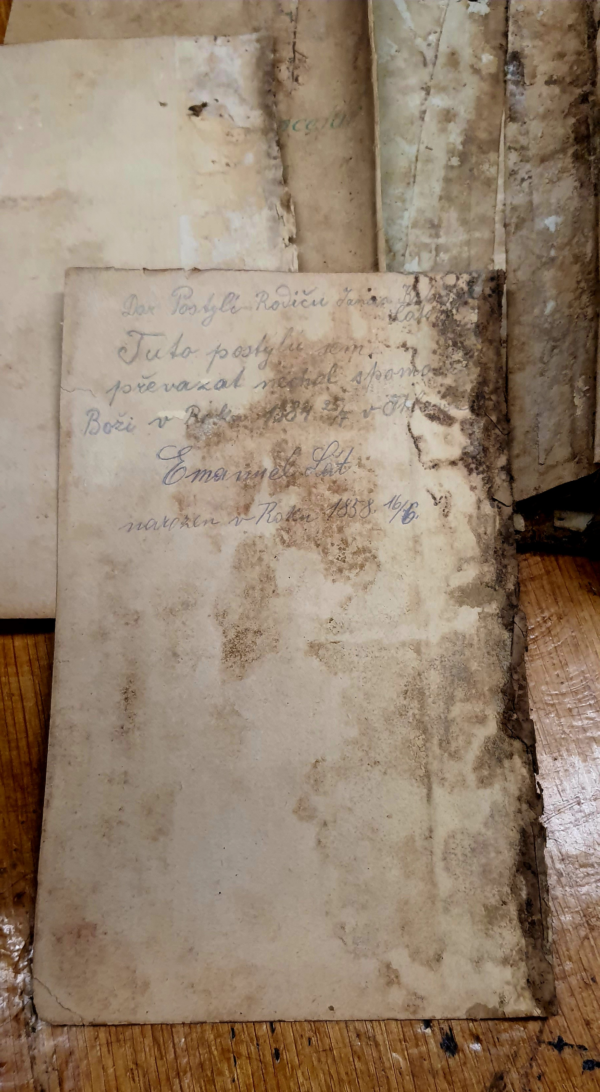 Dar Postylē Rodičů
Lát
Tuto postylu jsem
převazat nechal spomocí
Boži v Roku 1884 25/7 v
Emanuel Lát
narozen v Roku 1858. 16/6.